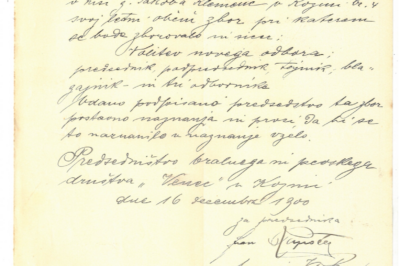 v hiši g. Jakoba Klemenc v Kojini št. 4
svoj letni občni zbor pri katerem
se bode zborovalo ni sicer:
Volitev novega odbora;
predsednik, podpredsednik, tajnik, bla-
gajnik – in tri odbornika
Udano podpisano predsedstvo ta zbor
postavno naznanja in prosi da bi se
to naznanilo v naznanje vzelo.
Predsedništvo bralnega ni pevskega
društva „Venec" v Kojini
dne 16 decembra 1900
za predsednika